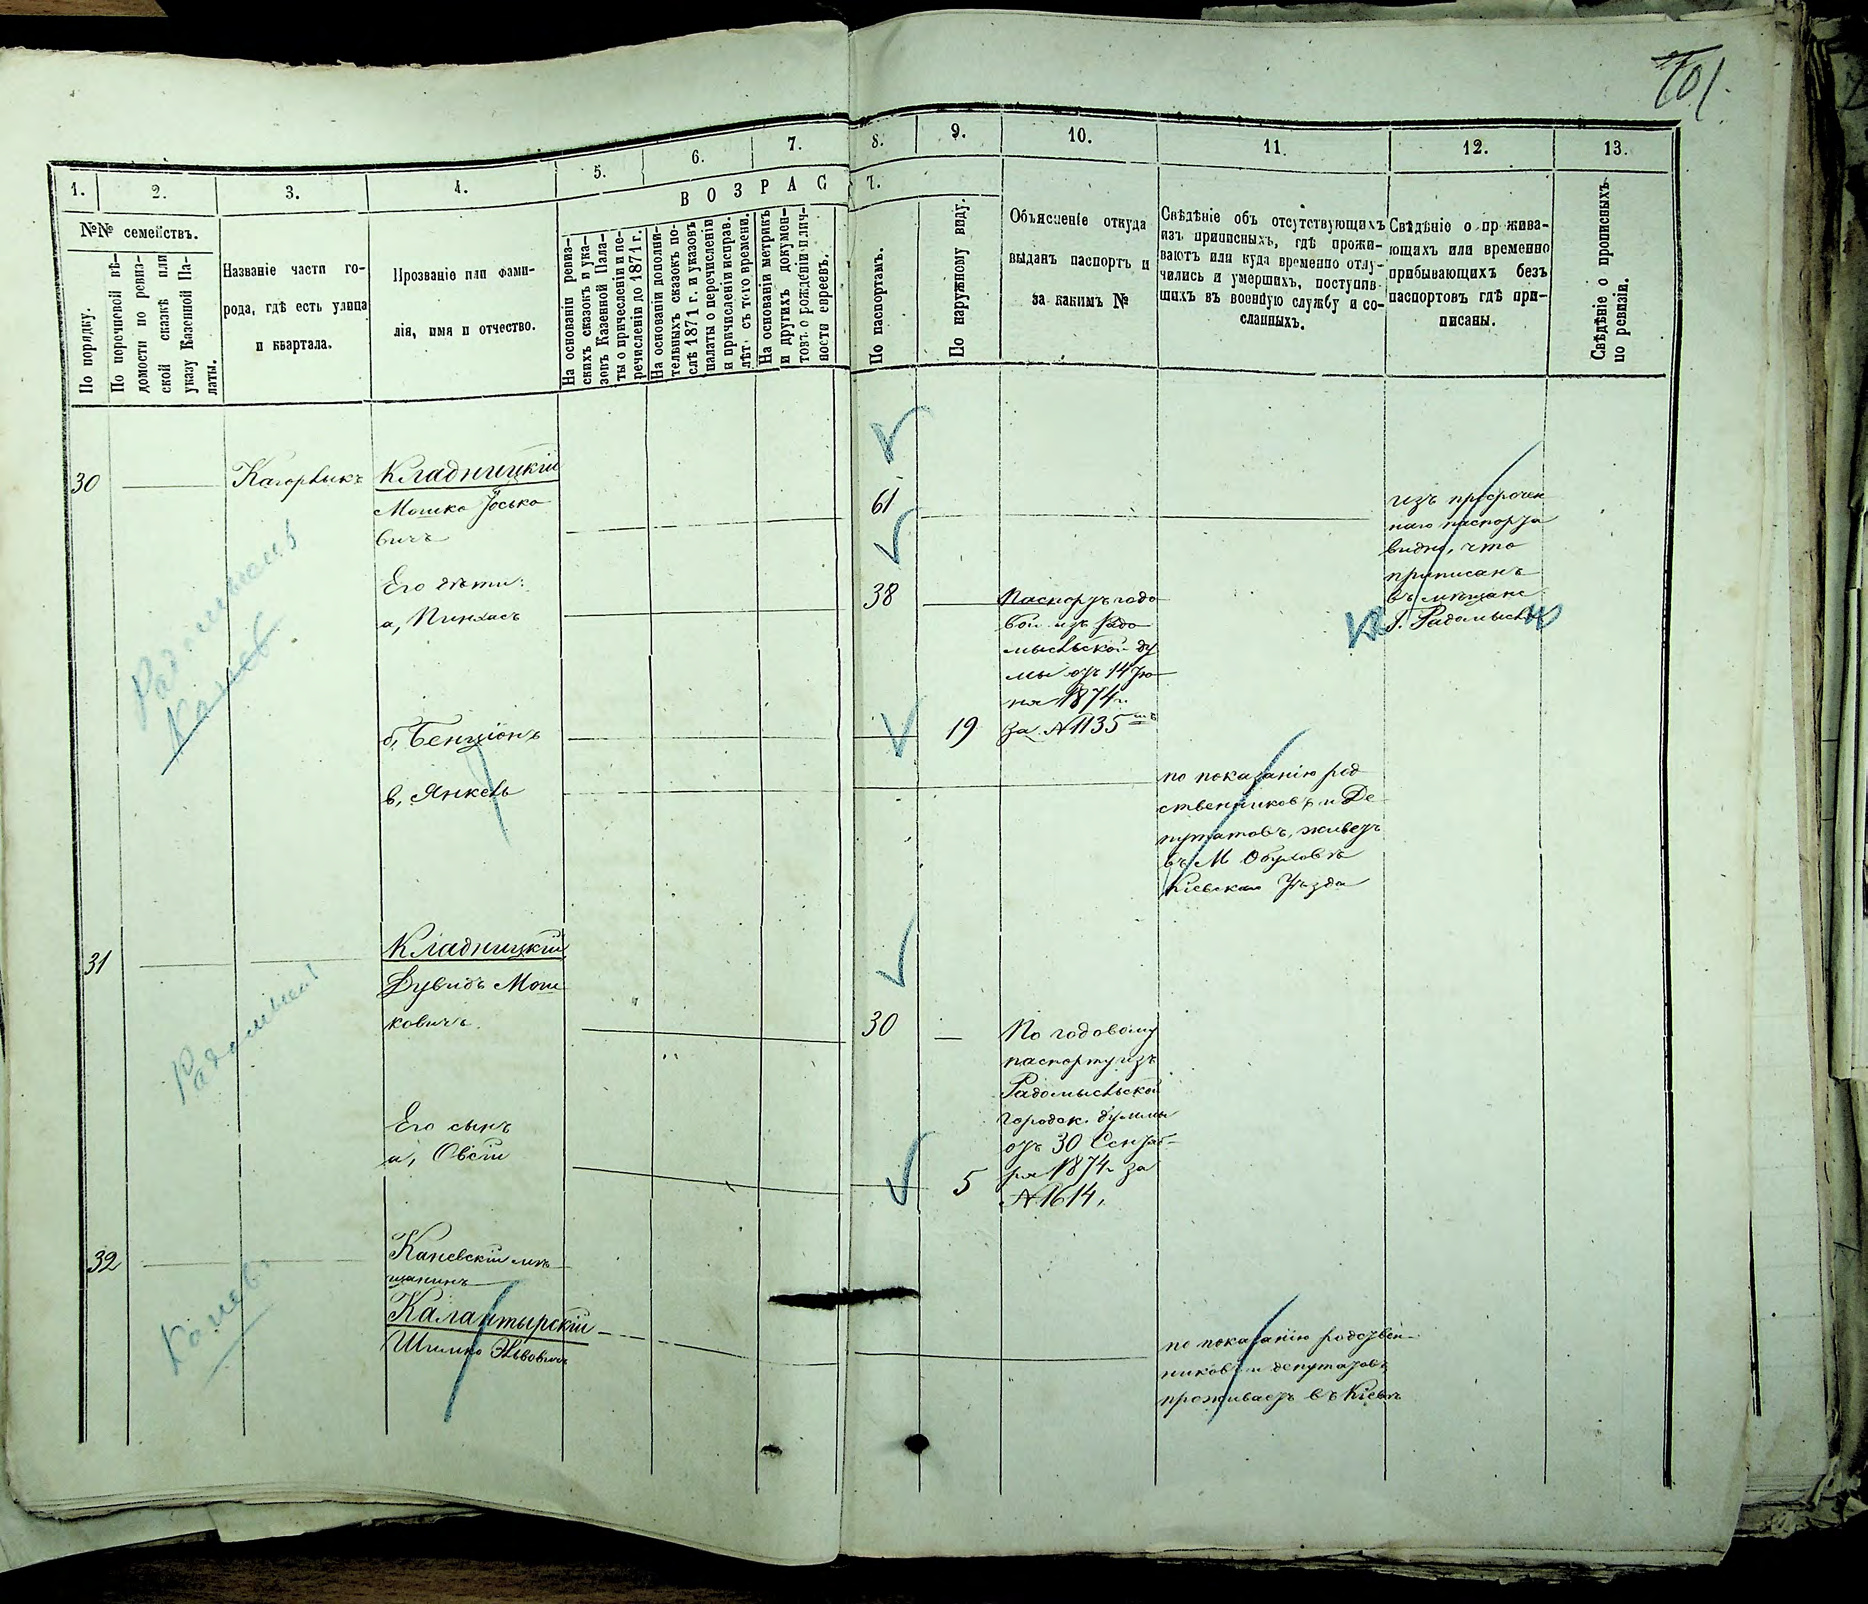 101.
1.
2.
3.
4.
5.
6.
7.
8.
9.
10.
11.
12.
13.
В О З Р А С
Т.
№№ семействъ.
По порядку.
По перечневой вѣ-
домости по ревиз-
ской сказкѣ или
указу Казенной Па-
латы.
Названіе части го-
рода, гдѣ есть улица
и квартала.
Прозваніе или фами-
лія, имя и отчество.
На основаніи ревиз-
скихъ сказокъ и ука-
зовъ Казенной Пала-
ты о причисленіи и пе-
речисленіи до 1871 г.
На основаніи дополни-
тельныхъ сказокъ по-
слѣ 1871 г. и указовъ
палаты о перечисленіи
и причисленіи исправ.
лѣт. съ того времени.
На основаніи метрикъ
и другихъ докумен-
товъ о рожденіи и лич-
ности евреевъ.
По паспортамъ.
По наружному виду.
Объясненіе откуда
выданъ паспортъ и
за какимъ №
Свѣдѣніе объ отсутствующихъ
изъ приписныхъ, гдѣ прожи-
ваютъ или куда временно отлу-
чились и умершихъ, поступив-
шихъ въ военную службу и со-
сланныхъ.
Свѣдѣніе о прожива-
ющихъ или временно
прибывающихъ безъ
паспортовъ гдѣ при-
писаны.
Свѣдѣніе о прописныхъ
по ревизіи.
30
Кагорлыкъ
Кладницкій
Мошко Йосько
вичъ
61
изъ просрочен
наго паспорта
видно, что
приписанъ
въ мѣщане
г. Радомысль
Его дѣти:
а, Пинхасъ
38
Паспортъ годо
вой изъ Радо
мысльской ду
мы отъ 14 Iю
ня 1874 г.
за №1135
Радомысль
Канев
б, Бенціонъ
19
в, Янкель
по показанію род
ственниковъ и Де
путатовъ, живетъ
въ М.
Кіевскаго Уѣзда
31
Кладницкій
Дувидъ Мош
ковичъ.
30
По годовому
паспорту изъ
Радомысльской
городск. думмы
отъ 30 Сентяб-
ря 1874 г. за
№1614,
Радомысль
Его сынъ
а, Овсій
5
32
Каневскій мѣ
щанинъ
Калантырскій
Шимко
Канев.
по показанію родствен-
никовъ и депутатовъ
проживаетъ въ Кіевѣ